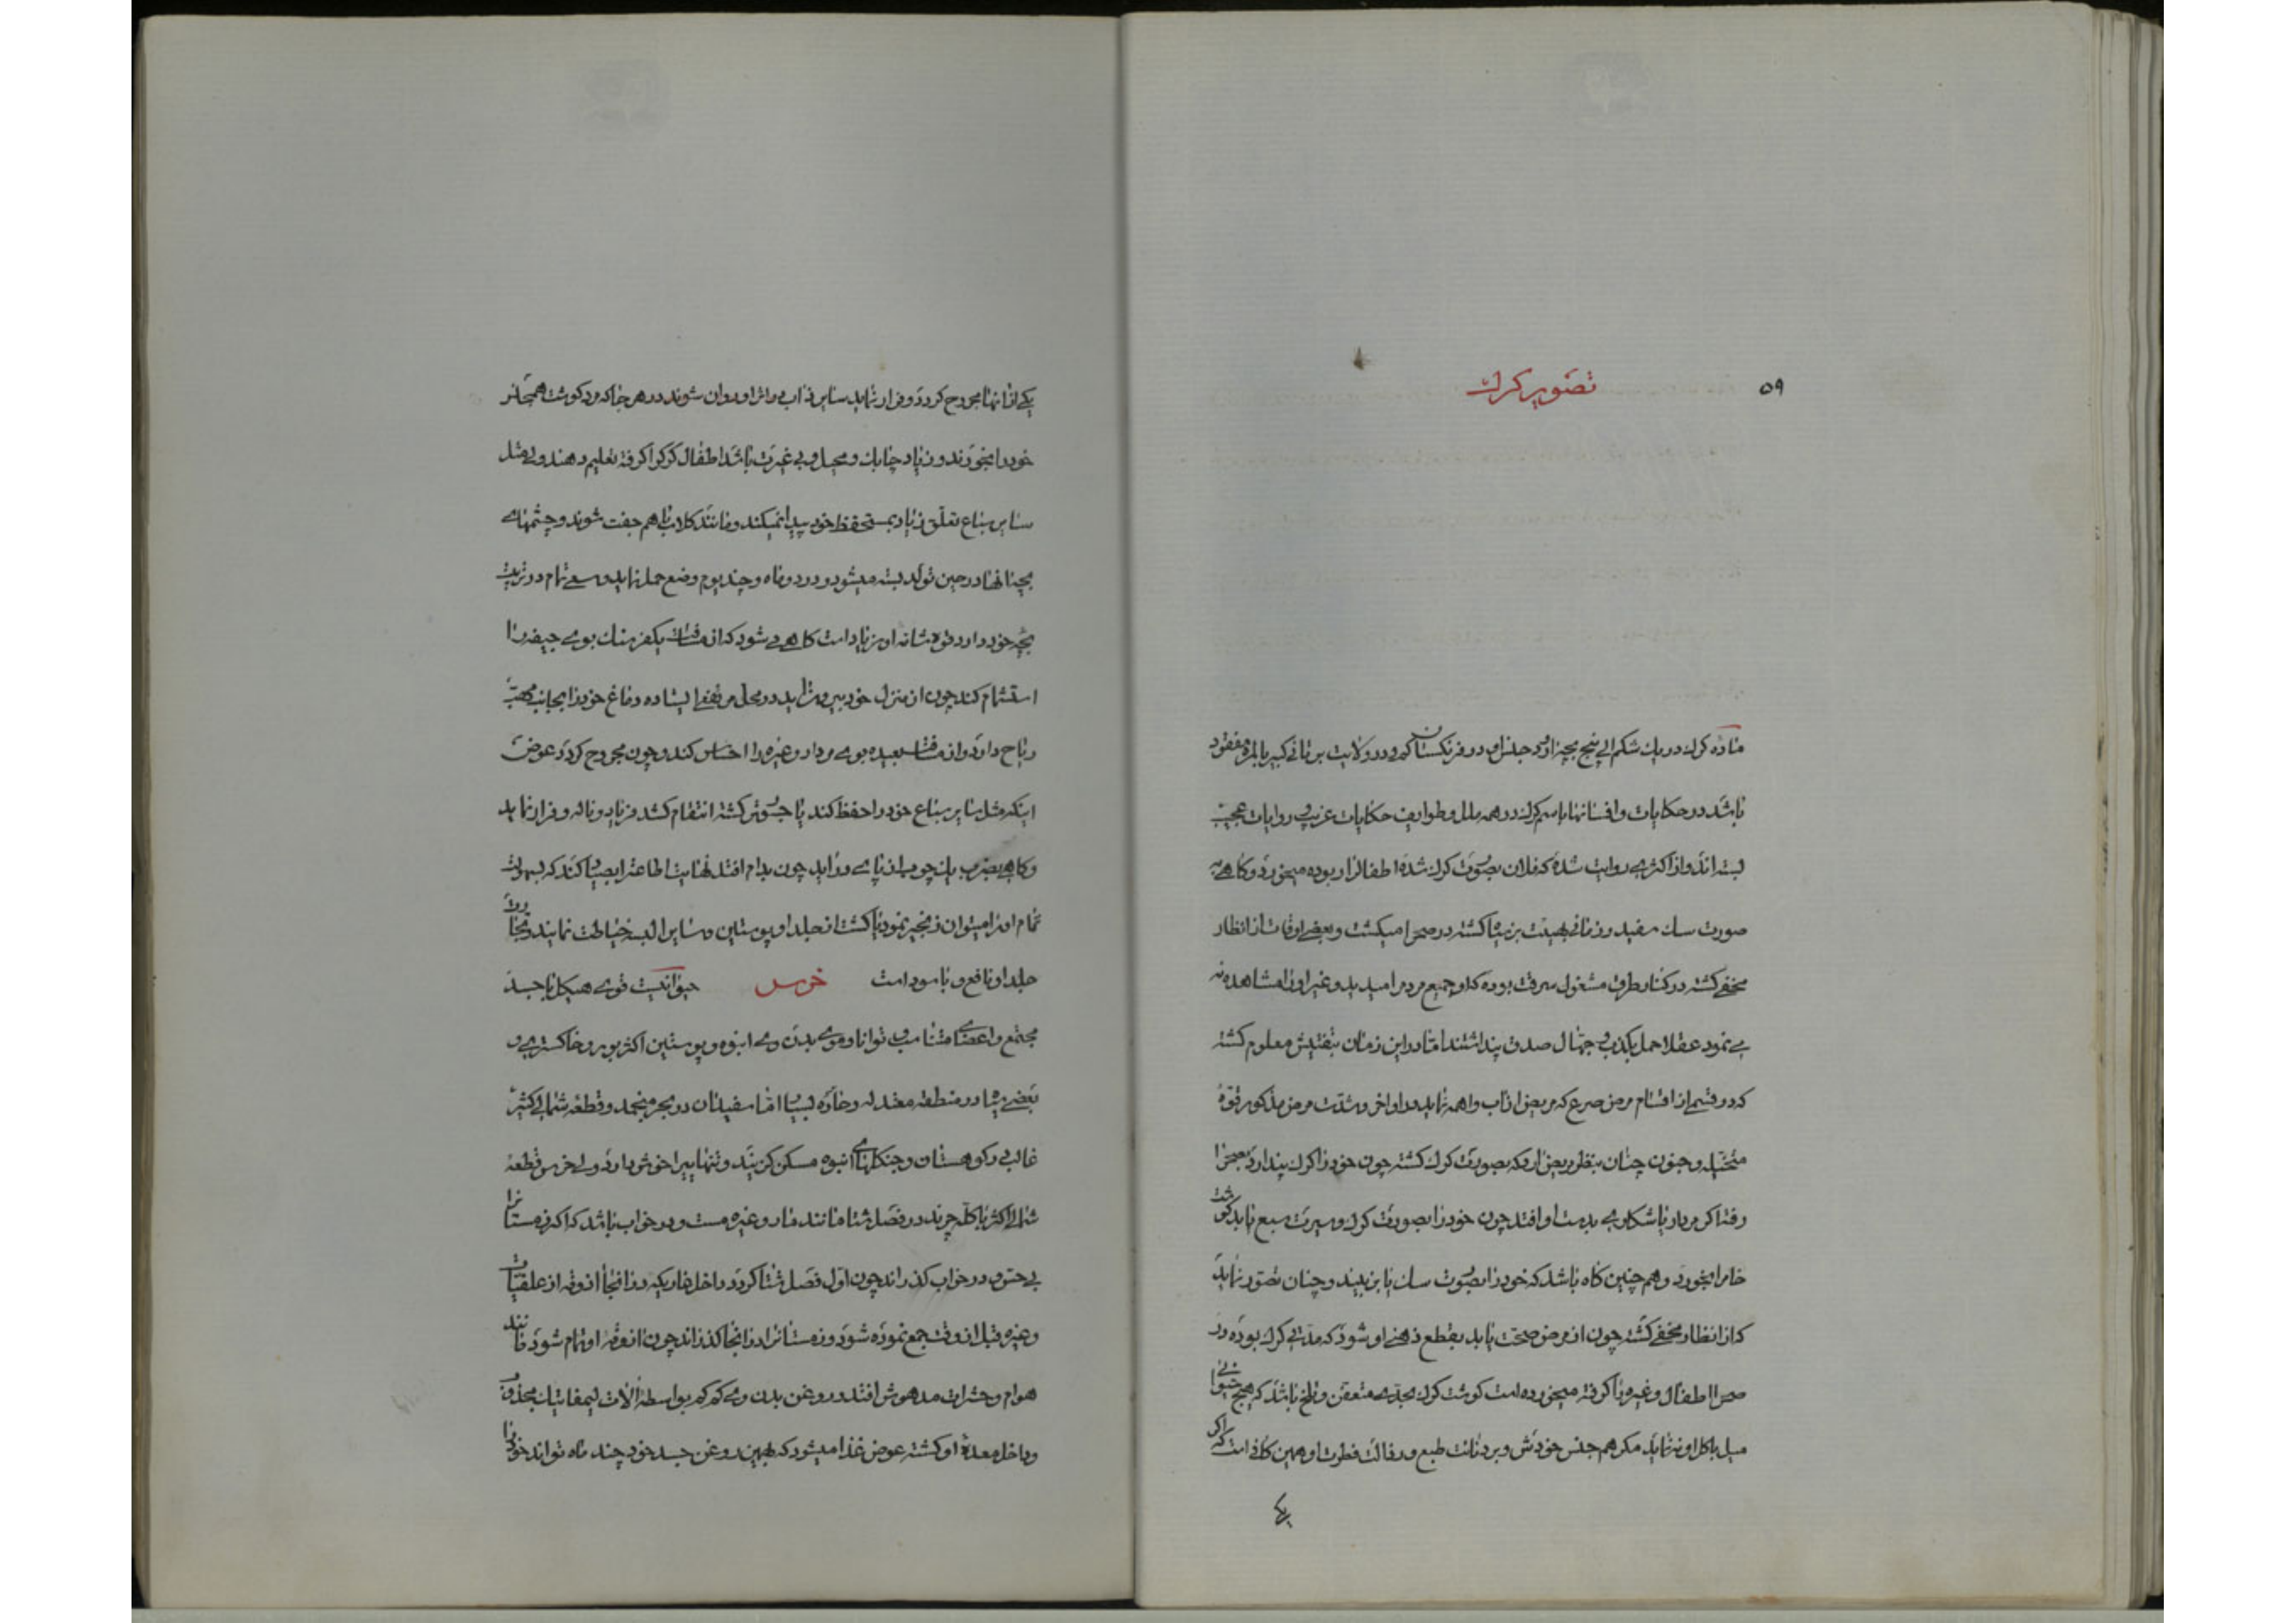 ۵۹
تصویر کرک
ماده کرک در یک شکم الی پنج بچه اورد جنس او در فرنکستان کم و در ولایت برتانی کبیر بالمره مفقود
باشد در حکایات و افسانها باسم کرک در همه ملل و طوایف حکایات غریب و روایات عجیب
بسته اند و از اکثری روایت شده که فلان بصورت کرک شده اطفالرا ربوده میخورد و کاهی به
صورت سک سفید و زمانی بهیئت بز سیاه کشته در صحرا میکشت و بعضی اوقات از انظار
مخفی کشته در کنار طرق مشغول سرقت بوده که او جمیع مردم را میدید و غیر او را مشاهده نه
می نمود عقلا حمل بکذب و جهال صدق پنداشتند اما در این زمان بتفتیش معلوم کشته
که در قسمی از اقسام مرض صرع که مریض از اب واهمه نماید در اواخر و شدت مرض مذکور قوۀ
متخیله و جنون چنان بنظر مریض ارد که بصورت کرک کشته چون خود را کرک پندارد بصحرا
رفته اکر مردار یا شکاری بدست او افتد چون خود را بصورت کرک و سیرت سبع یابد کوشت
خام را بخورد و هم چنین کاه باشد که خود را بصورت سک یا بز بیند و چنان تصور نماید
که از انظار مخفی کشته چون از مرض صحت یابد بقطع ذهنی او شود که مدتی کرک بوده و در
صحرا اطفال و غیره را کرفته میخورده است کوشت کرک بحدی متعفن و تلخ باشد که هیچ حیوانی
میل باکل او نه نماید مکر هم جنس خودش و بر دنائت طبع و رذالت فطرت او همین کافی است که اکر
یکی
یکی از انها مجروح کردد و فرار نماید سایر ذئاب در اثر او روان شوند در هر جا که مرد کوشت همجنس
خود را میخورند و زیاد چابک و محیل و بی غیرت باشد اطفال کرک را کرفته تعلیم دهند ولی مثل
سایر سباع تعلق زیاد بمستحفظ خود پیدا نمیکند و مانند کلاب با هم جفت شوند و چشمهای
بچه انها در حین تولد بسته میشود و در دو ماه و چند یوم وضع حمل نماید و سعی تمام در تربیت
بچه خود دارد قوۀ شامه او زیاد است کاهی شود که از مسافت یکفرسنک بوی جیفه را
استشمام کند چون از منزل خود بیرون اید در محل مرتفع ایستاده دماغ خود را بجانب مهب
ریاح دارد و از مسافت بعیده بوی مردار و غیره را احساس کند و چون مجروح کردد عوض
اینکه مثل سایر سباع خود را حفظ کند یا جسور کشته انتقام کشد فریاد و ناله و فرار نماید
و کاهی بضرب یک چوب از پای در اید چون بدام افتد نهایت اطاعت را بصیاد کند که بسهولت
تمام او را میتوان زنجیر نمود یا کشت از جلد او پوستین و سایر البسه خیاطت نمایند و تجارت
جلد او نافع و با سود است خرس حیوانیست قوی هیکل با جسد
مجتمع و اعضای متناسب و توانا و موی بدن وی انبوه و پوستین اکثر بور و خاکستری و
بعضی سیاه در منطقه معتدله و حاره بسیار اما سفید ان در بحر منجمد و قطعه شمالی کثیر
غالب در کوهستان و جنکلهای انبوه مسکن کزیند و تنهایی را خوش دارد ولی خرس قطعه
شمالی اکثر با کله چرند در فصل شتا مانند مار و غیره مست و در خواب باشد که اکثر زمستانرا
بی حس و در خواب کذراند چون اول فصل شتا کردد داخل غاری که در انجا اذوقه از علفیات
و غیره قبل از وقت جمع نموده شود و زمستانرا در انجا کذراند چون اذوقه او تمام شود مانند
هوام و حشرات مدهوش افتد و روغن بدن وی کم کم بواسطه الات لیمفاتیک مجذوب
و داخل معدۀ او کشته عوض غذا میشود که بهمین روغن جسد خود چند ماه تواند خود را